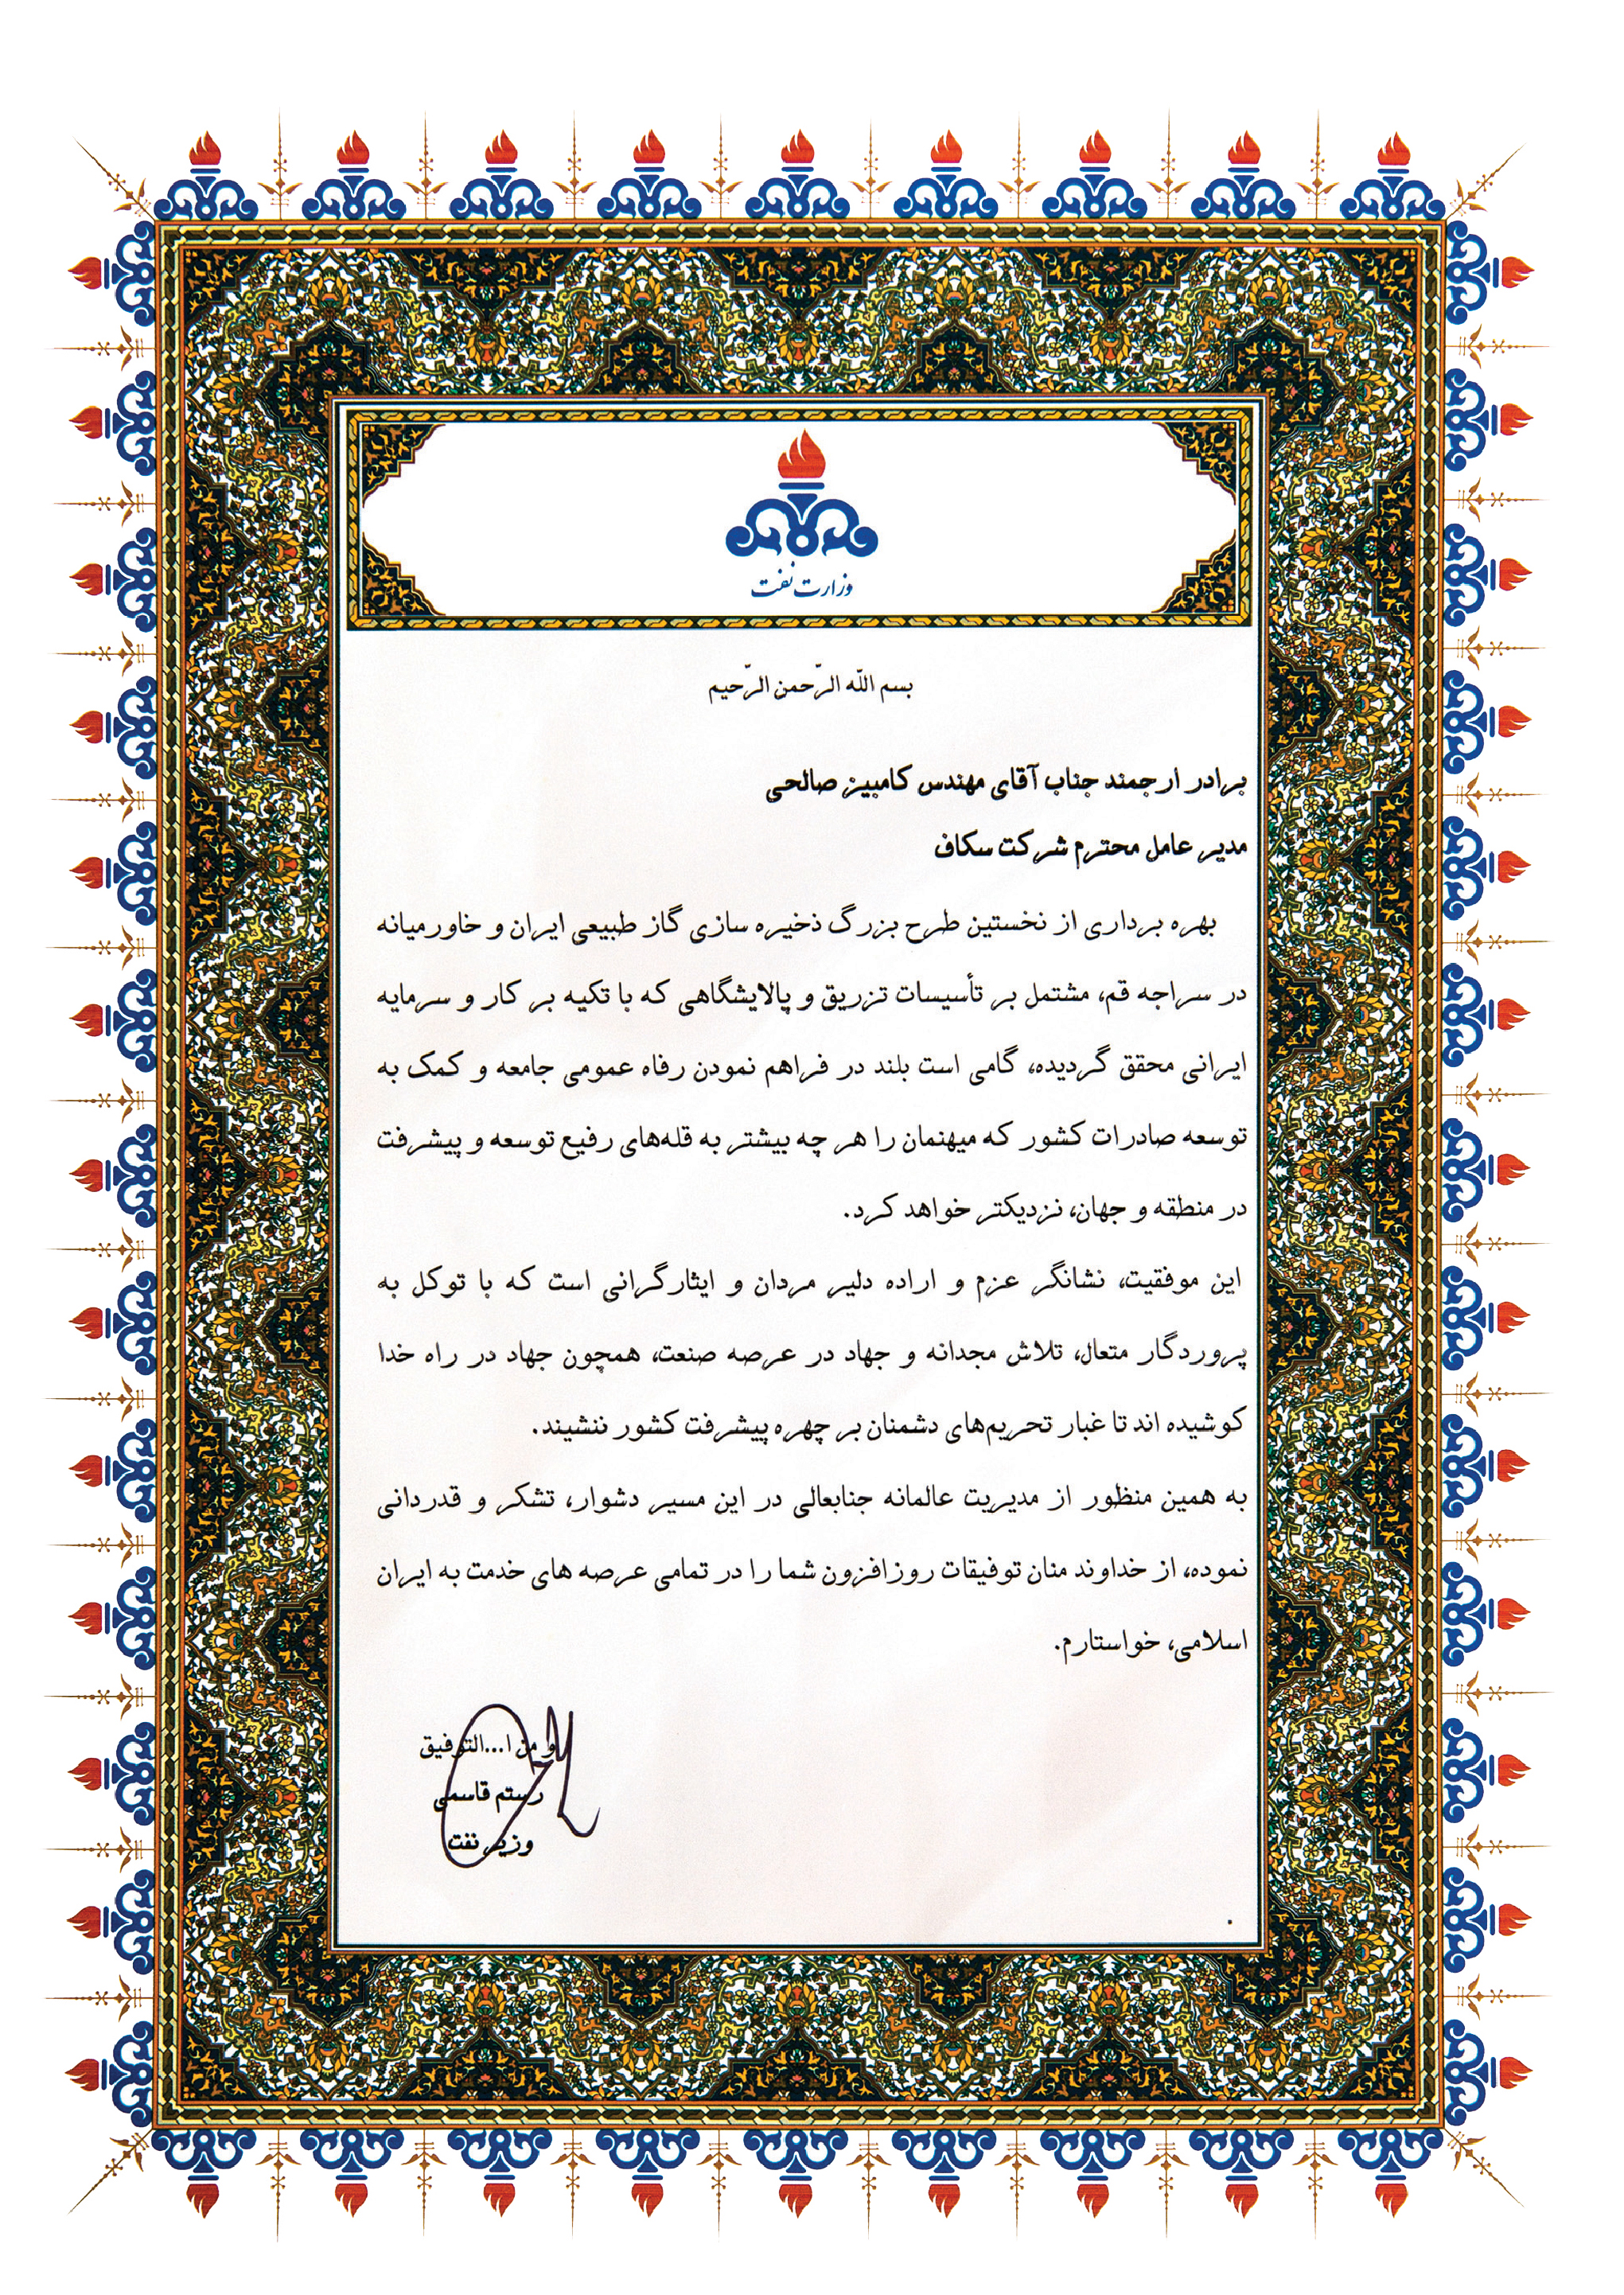 وزارت نفت
بسم اللّه الرّحمن الرّحیم
برادر ارجمند جناب آقای مهندس کامبیز صالحی
مدیر عامل محترم شرکت سکاف
بهره برداری از نخستین طرح بزرگ ذخیره سازی گاز طبیعی ایران و خاورمیانه
در سراجه قم، مشتمل بر تأسیسات تزریق و پالایشگاهی که با تکیه بر کار و سرمایه
ایرانی محقق گردیده، گامی است بلند در فراهم نمودن رفاه عمومی جامعه و کمک به
توسعه صادرات کشور که میهنمان را هر چه بیشتر به قله‌های رفیع توسعه و پیشرفت
در منطقه و جهان، نزدیکتر خواهد کرد.
این موفقیت، نشانگر عزم و اراده دلیر مردان و ایثارگرانی است که با توکل به
پروردگار متعال، تلاش مجدانه و جهاد در عرصه صنعت، همچون جهاد در راه خدا
کوشیده اند تا غبار تحریم‌های دشمنان بر چهره پیشرفت کشور ننشیند.
به همین منظور از مدیریت عالمانه جنابعالی در این مسیر دشوار، تشکر و قدردانی
نموده، از خداوند منان توفیقات روزافزون شما را در تمامی عرصه های خدمت به ایران
اسلامی، خواستارم.
و من ا...التوفیق
رستم قاسمی
وزیر نفت